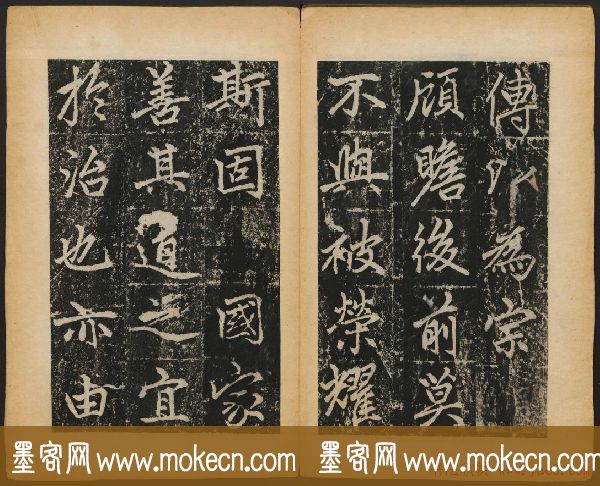 傅以為宗
顧瞻後前莫
不與被榮耀
斯固 國家
善其道之宜
於治也亦由
墨客网 www.mokecn.com
墨客网 www.mokecn.com